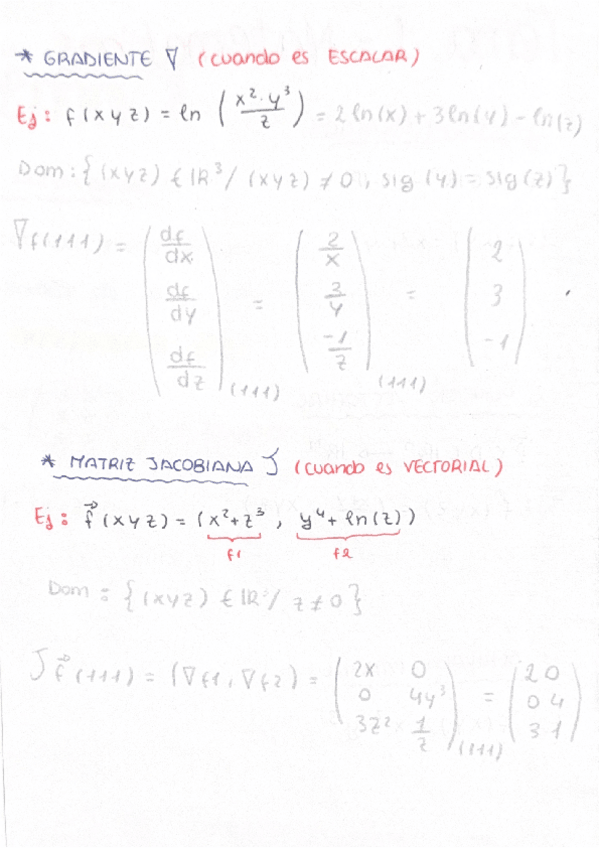 * GRADIENTE ∇ (cuando es ESCALAR)
Ej: f(xyz) = ln (x²·y³/z) = 2ln(x) + 3ln(y) - ln(z)
Dom: {(xyz) ∈ IR³/ (xyz) ≠ 0, sig (y) = sig(z)}
∇f(111) = (df/dx df/dy df/dz)(111) = (2/x 3/y -1/z)(111) = (2 3 -1)
* MATRIZ JACOBIANA J (cuando es VECTORIAL)
Ej: f⃗(xyz) = (x²+z³, y⁴+ln(z))
f1 f2
Dom = {(xyz) ∈ IR³/ z≠0}
J f⃗(111) = (∇f1, ∇f2) = (2x 0 0 4y³ 3z² 1/z)(111) = (2 0 0 4 3 1)